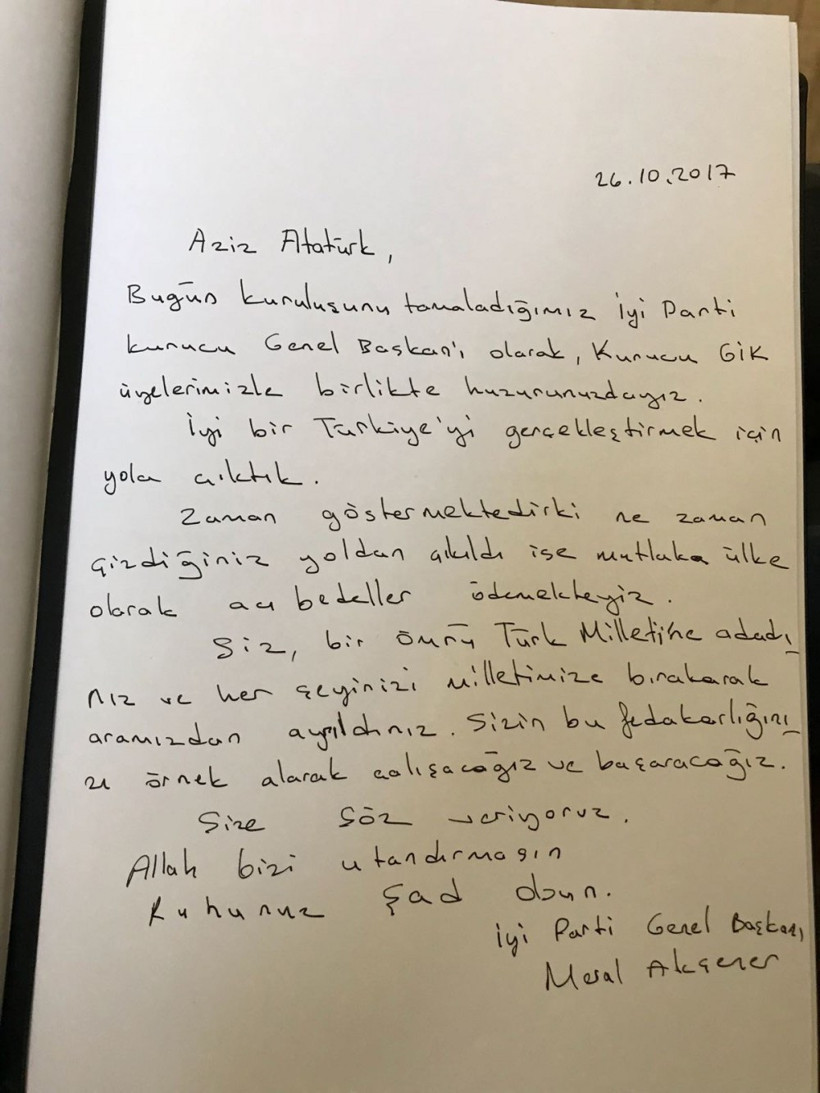 26.10.2017
Aziz Atatürk,
Bugün kuruluşunu tamaladığımız İyi Parti
kurucu Genel Başkan'ı olarak, Kurucu GİK
üyelerimizle birlikte huzurunuzdayız.
İyi bir Türkiye'yi gerçekleştirmek için
yola çıktık.
Zaman göstermektedirki ne zaman
çizdiğiniz yoldan çıkıldı ise mutlaka ülke
olarak acı bedeller ödemekteyiz.
Siz, bir ömrü Türk Milleti'ne adadı
nız ve her şeyinizi milletimize bırakarak
aramızdan ayrıldınız. Sizin bu fedakarlığını
zı örnek alarak çalışacağız ve başaracağız.
Size söz veriyoruz.
Allah bizi utandırmasın
Ruhunuz şad olsun.
İyi Parti Genel Başkanı
Meral Akşener